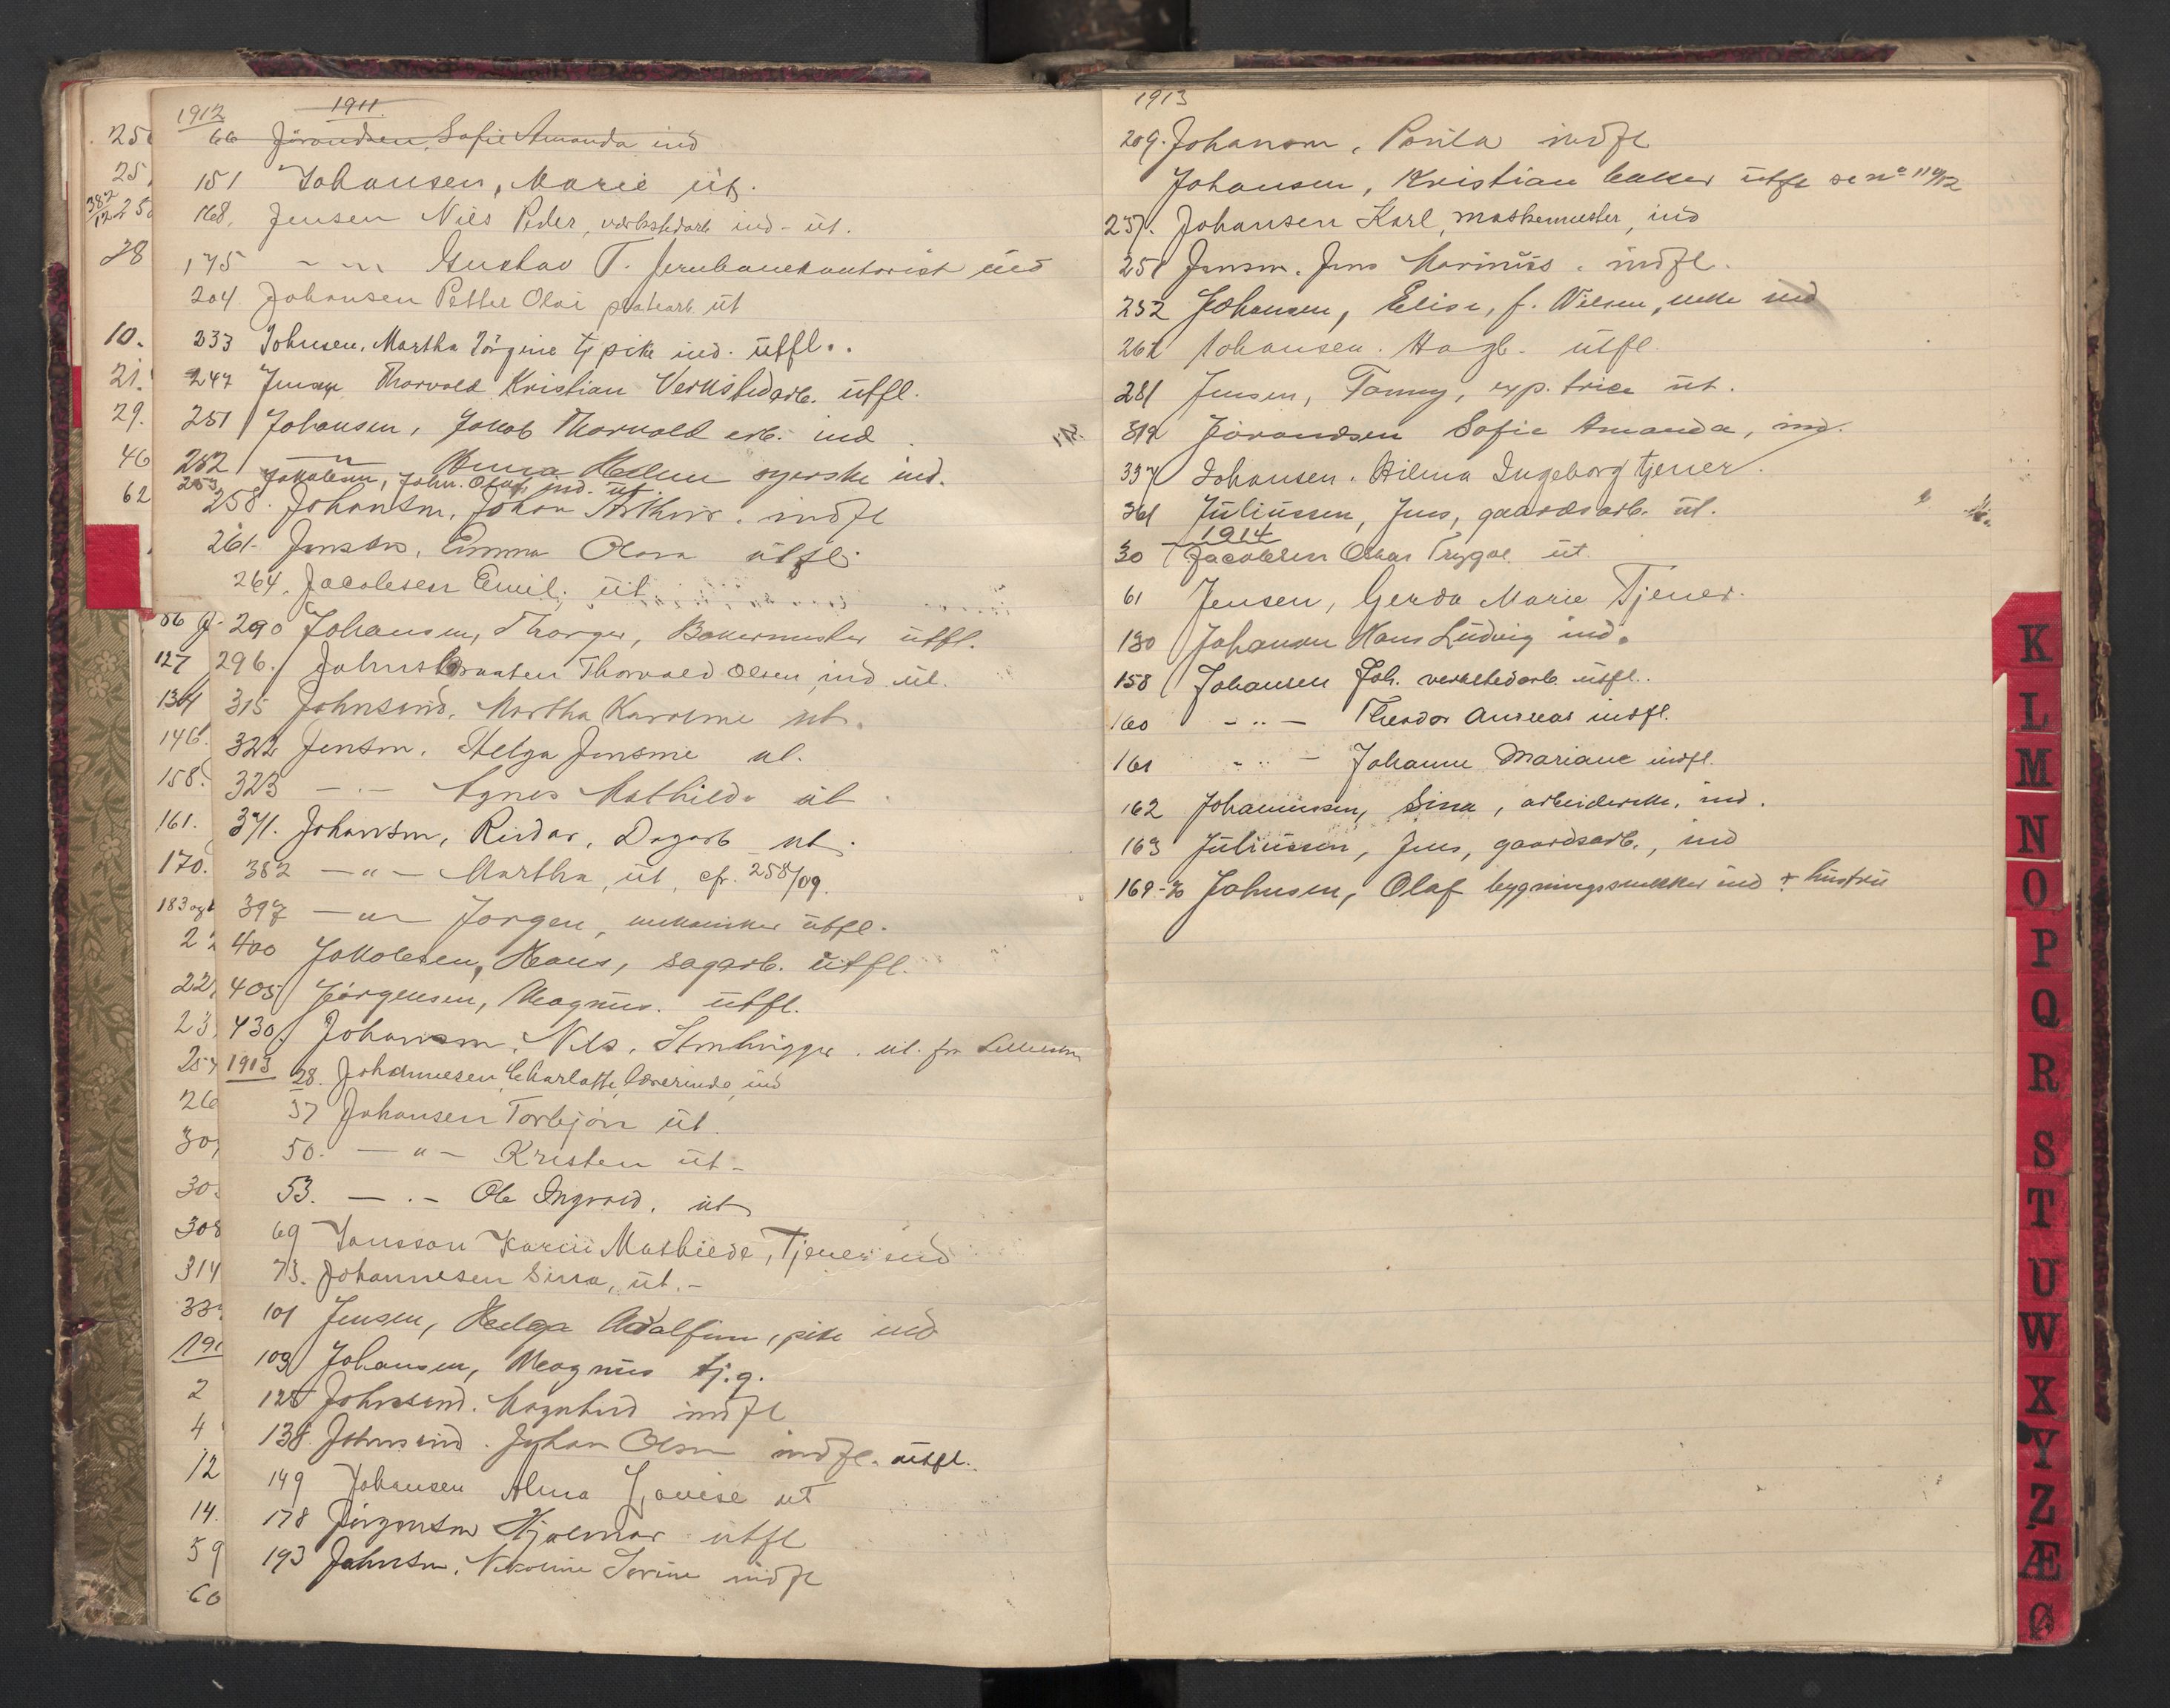 1912 1911
66 Jörandsen, Sofie Amanda ind
151 Johansen, Marie üt.
168. Jensen Nils Peder, verkstedarb ind - üt.
175 - " - Gustav T. Jernbanekontorist ind
204. Johansen Petter Olai üt
233 Johnsen, Martha Jörgine tj pike ind. ütfl.
247 Jensen Thorvald Kristian Verkstedarb. ütfl.
251 Johansen, Jakob Thorvald arb. ind
252 — " — Anna Helene syerske ind.
253 Jakobsen, Johan Olaf ind. üt.
258. Johansen, Johan Arthur. indfl
261. Jensen, Emma Olava ütfl.
264. Jacobsen Emil. üt.
290 Johansen, Thorger, Bakermester ütfl.
296. Johnsbraaten Thorvald Olsen, ind üt.
315 Johnsrud, Martha Karoline üt.
322 Jensen, Helga Jensine üt.
323 — . — Agnes Mathilde üt
371. Johansen, Reidar, Dagarb üt.
382 — " — Martha, üt, cfr. 258/09.
397 — " — Jorgen, mekaniker ütfl.
400 Jakobsen, Hans, sagarb. ütfl.
405 Jörgensen, Magnus. ütfl.
430. Johansen, Nils, Stenhugger. üt. fra Lillestrøm
1913
28. Johannesen, Charlotte, lærerinde, ind
37 Johansen Torbjörn üt.
50. — " — Kristen üt -
53. — . — Ole Ingvald. üt
69 Jansson Karin Mathilde, Tjener ind
73. Johannesen Sina, üt. -
101 Jensen, Helga Adalfine, pike ind
109 Johansen, Magnus tj.g.
125 Johnsrud. Magnhild indfl
138 Johnsrud. Johan Olsen indfl. ütfl.
149 Johansen Alma Lovise üt
178 Jörgensen Hjalmar ütfl
193 Johnsen, Nikoline Serine indfl
1913
209. Johansen, Paula indfl
Johansen, Kristian baker ütfl se no 110/12
237. Johansen Karl, maskemester, ind
251 Jensen. Jens Marinüs. indfl.
252 Johansen, Elise, f. Nilsen, enke ind
262 Johansen. Hagb. ütfl
281 Jensen, Fanny, exp. trice üt.
312 Jörandsen Sofie Amanda, ind.
337 Johansen. Hilma Ingeborg tjener.
361 Jüliüssen, Jens, gaardsarb. üt.
1914
30 Jacobsen Oskar Trygve üt
61 Jensen, Gerda Marie Tjener.
130 Johansen Hans Lüdvig ind.
158 Johansen Joh. verkstedarb. ütfl.
160 - " - Theodor Andreas indfl.
161 - " - Johanne Mariane indfl.
162 Johannessen, Sina, arbeiderske, ind.
163 Jüliüssen, Jens, gaardsarb., ind
169-70 Johnsen, Olaf bygningssnekker ind + hüstrü
K
L
M
N
O
P
Q
R
S
T
U
W
X
Y
Z
Æ
Ø